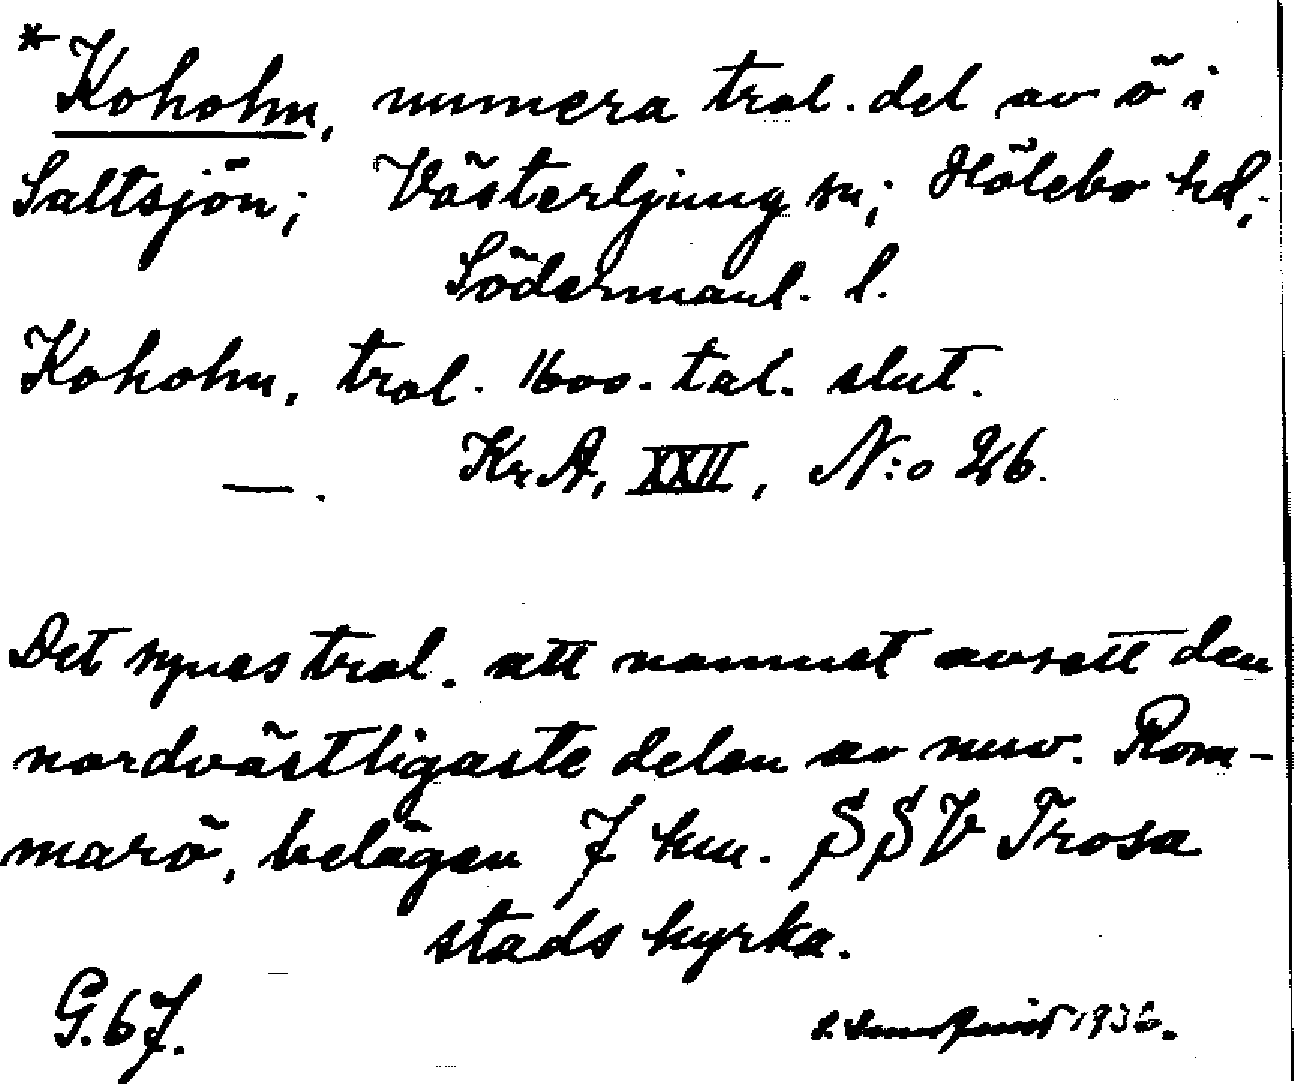 *Kohohn, numera trol. del av ö i
Saltsjön; Västerljung sn; Hölebo hd;
Södermanl. l.
Kohohn, trol. 1600-tal. slut.
—. Kr.A, XXII, N:o 26.
Det synes trol. att namnet avsett den
nordvästligaste delen av nuv. Rom-
marö, belägen 7 km. SSV Trosa
stads kyrka.
G.67. 1936.